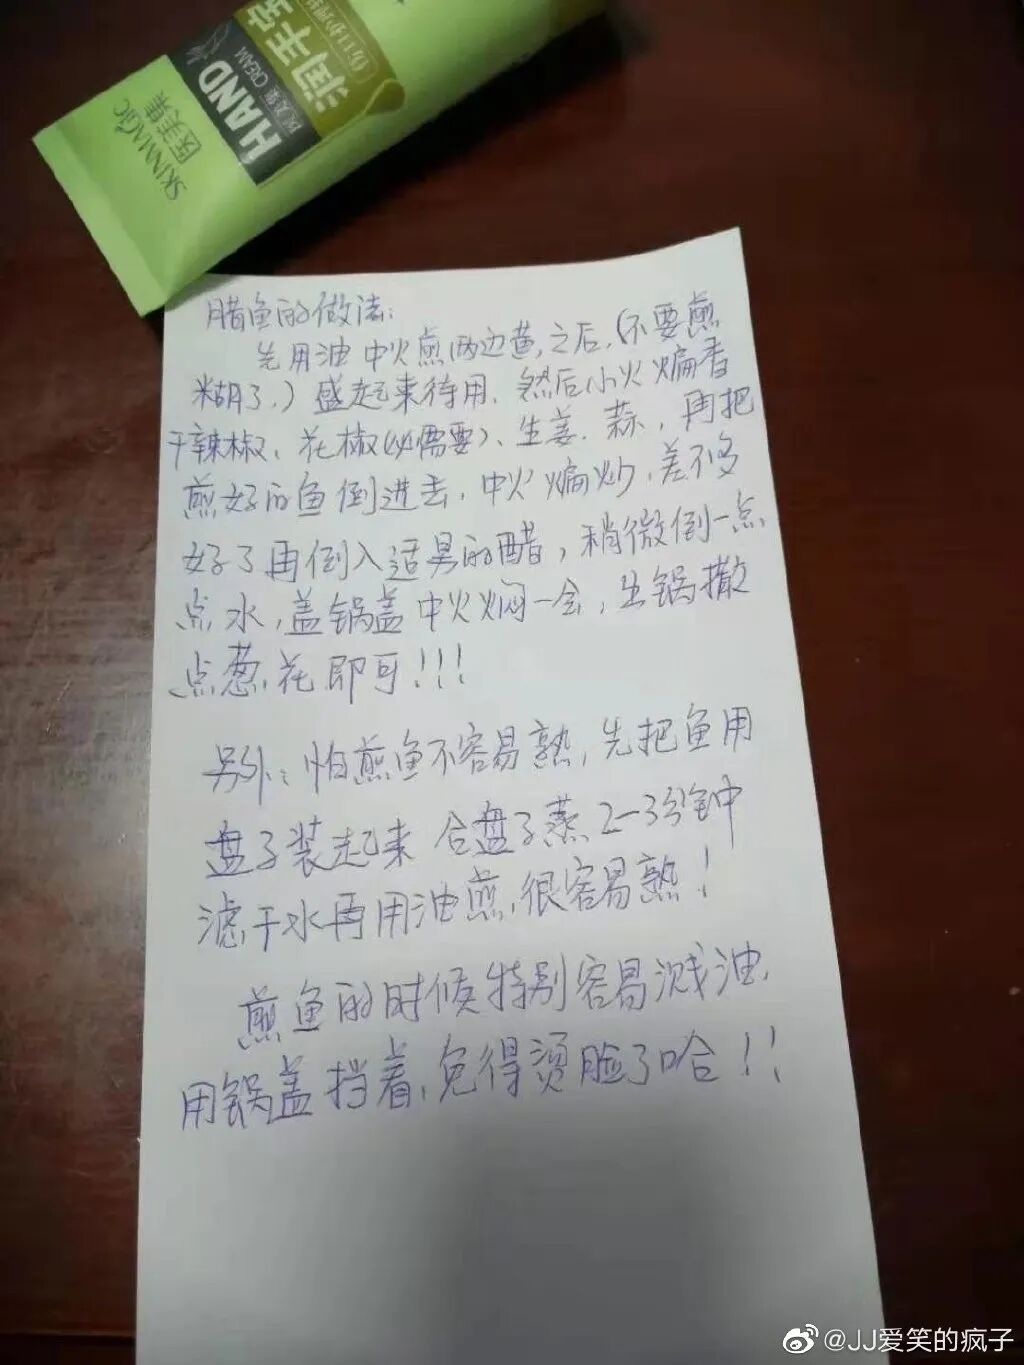 SKINMAGIC
医美集
HAND
CREAM
润手霜
腊鱼的做法：
先用油中火煎两边黄，之后，（不要煎
糊了，）盛起来待用，然后小火煸香
干辣椒、花椒（必需要）、生姜、蒜，再把
煎好的鱼倒进去，中火煸炒，差不多
好了再倒入适量的醋，稍微倒一点
点水，盖锅盖中火焖一会，出锅撒
点葱花即可！！！
另外：怕煎鱼不容易熟，先把鱼用
盘子装起来 合盘子蒸2-3分钟
滤干水再用油煎，很容易熟！
煎鱼的时候特别容易溅油，
用锅盖挡着，免得烫脸了哈！！
@JJ爱笑的疯子